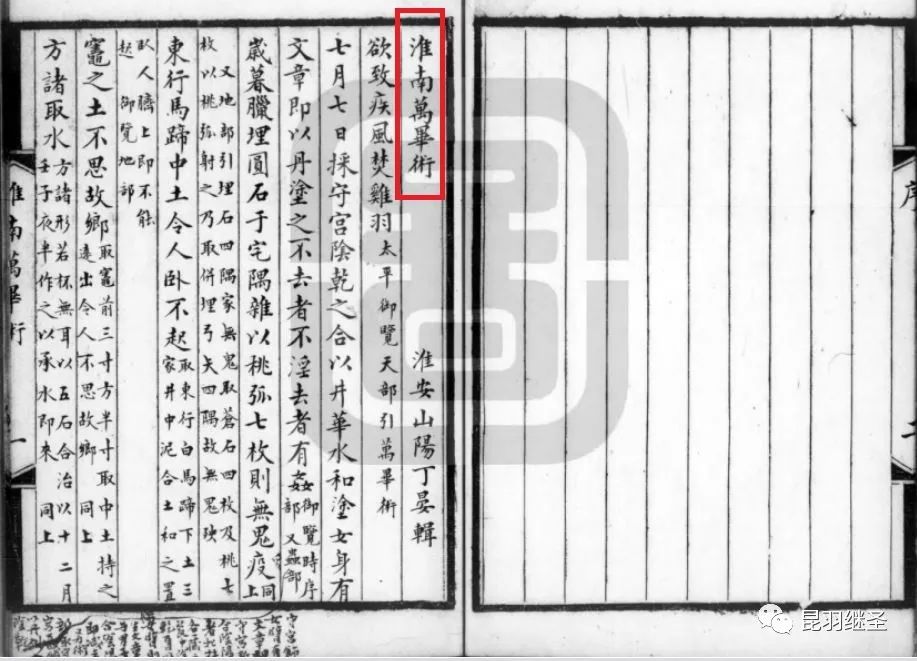 序
二
淮南萬畢術
淮安山陽丁晏輯
欲致疾風焚雞羽太平御覽天部引萬畢術
七月七日採守宮陰乾之合以井華水和塗女身有
文章即以丹塗之不去者不淫去者有姦御覽時序部又蟲部
歲暮臘埋圓石于宅隅雜以桃弧七枚則無鬼疫同上
又地部引埋石四隅家無鬼取蒼石四枚及桃七
枚以桃弧射之乃取併埋弓矢四隅故無鬼殃
東行馬蹄中土令人卧不起取東行白馬蹄下土三家井中泥合土和之置
卧人臍上即不能
起御覽地部
竈之土不思故鄉取竈前三寸方半寸取中土持之遠出令人不思故鄉同上
方諸取水方諸形若杯無耳以五石合治以十二月壬子夜半作之以承水即來同上
淮南萬畢術
一
昆羽继圣